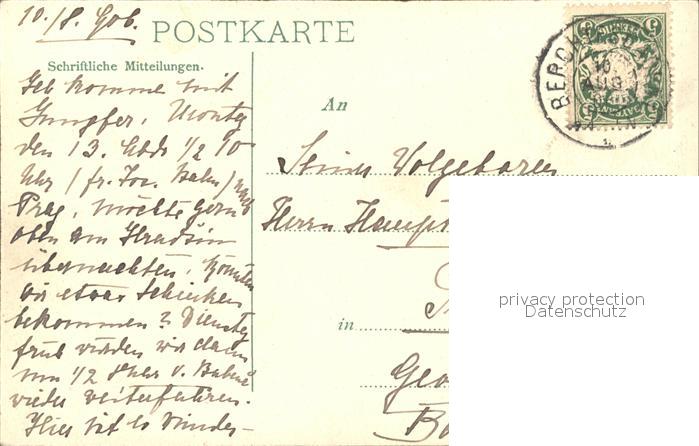 10./8. 906.
POSTKARTE
Schriftliche Mitteilungen.
Ich komme mit
Jungfer, Montag
den 13. Abds 1/2 10
Uhr (fr. Jos. Bahn) nach
Prag, möchte gern
oben am Hradschin
übernachten. Könnten
wir etwas Schinken
bekommen? Dienstag
früh würden wir dann
um 1/2 8 Uhr v. Bahnh
wieder weiterfahren.
Hier ist es wunder-
An
Seiner Wolgeboren
Herrn Haupt
in
Geo
BERCHT
5
privacy protection
Datenschutz